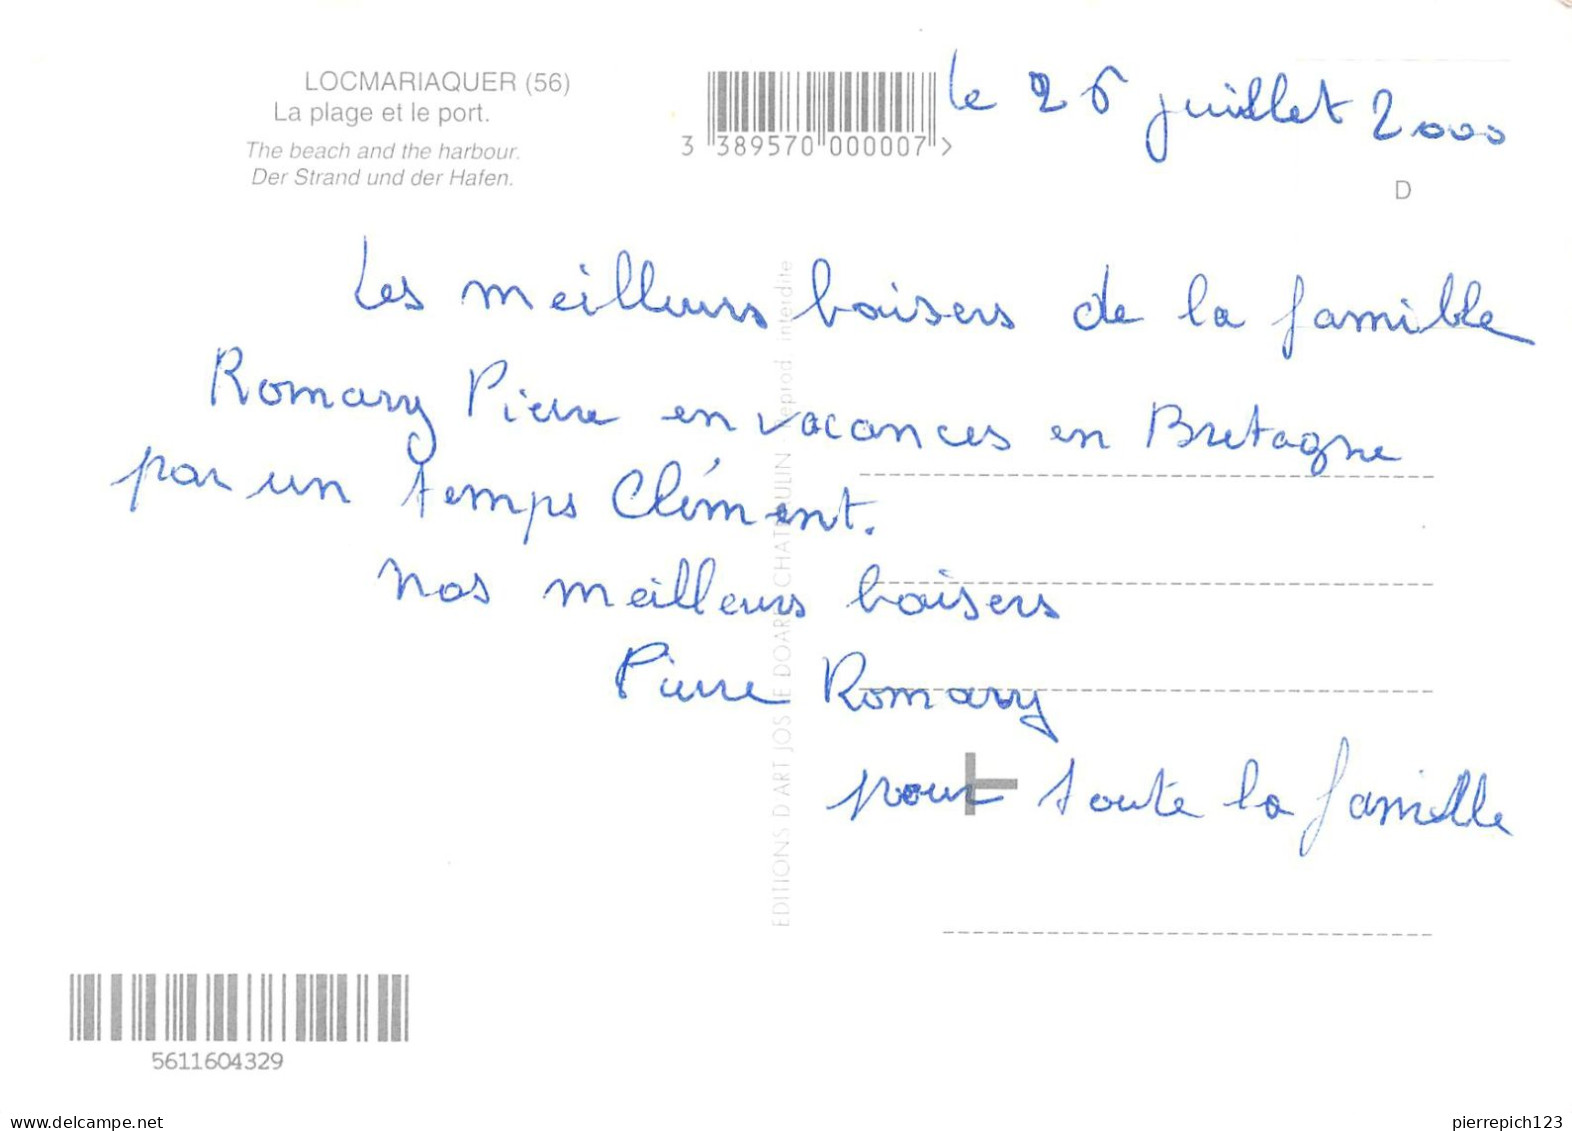 LOCMARIAQUER (56)
La plage et le port.
The beach and the harbour.
Der Strand und der Hafen.
3 389570 000007 >
le 26 juillet 2000
D
Les meilleurs baisers de la famille
Romary Pierre en vacances en Bretagne
par un temps Clément.
Nos meilleurs baisers
Pierre Romary
pour toute la famille
EDITIONS D'ART JOS LE DOARE CHATEAULIN Reprod interdite
5611604329
www.delcampe.net
pierrepich123